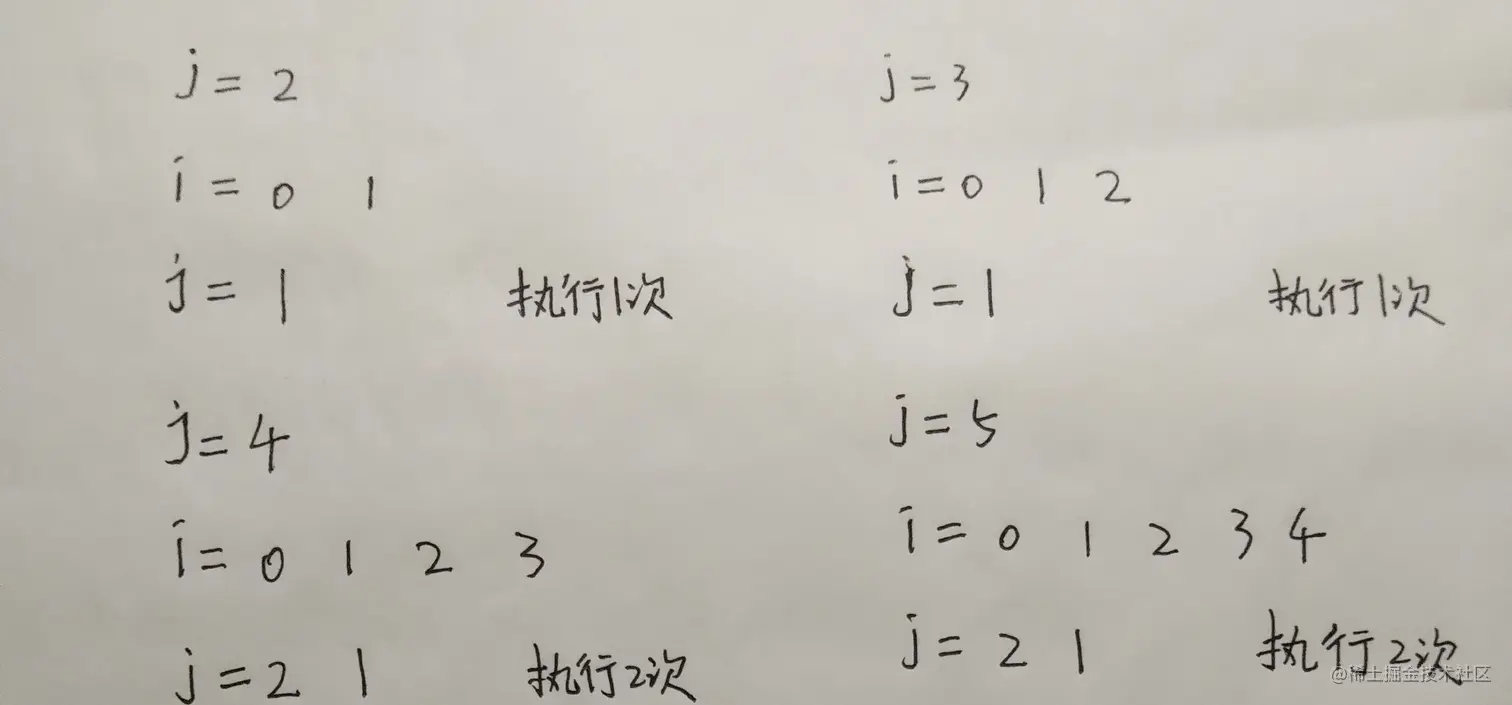 j = 2
i = 0 1
j = 1 执行1次
j = 3
i = 0 1 2
j = 1 执行1次
j = 4
i = 0 1 2 3
j = 2 1 执行2次
j = 5
i = 0 1 2 3 4
j = 2 1 执行2次
@稀土掘金技术社区